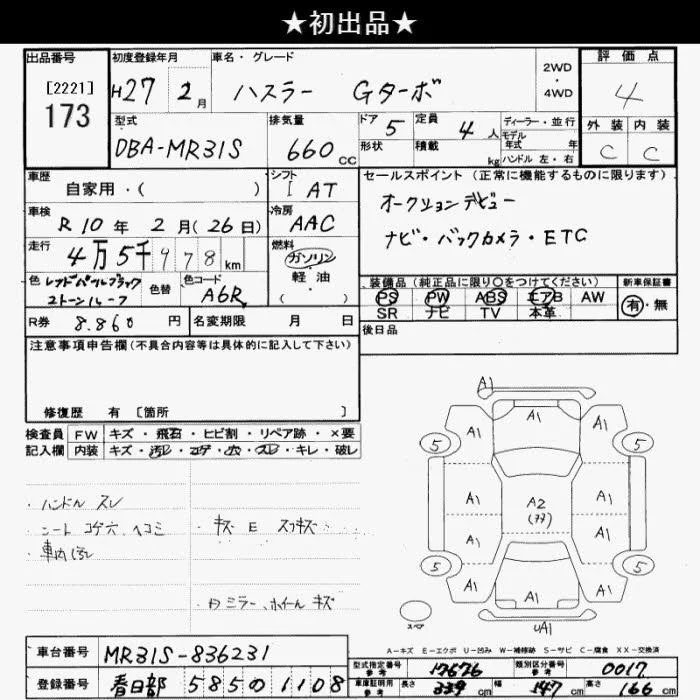 ★初出品★
出品番号
[2221]
173
初度登録年月
H27 2月
車名・グレード
ハスラー Gターボ
2WD
・
4WD
評価点
4
外装 内装
C C
型式
DBA-MR31S
排気量
660 cc
ドア
5
形状
定員
4人
積載
kg
ディーラー・並行
モデル
年式 年
ハンドル 左・右
車歴
自家用・( )
シフト
I AT
セールスポイント (正常に機能するものに限ります)
オークションデビュー
ナビ・バックカメラ・ETC
車検
R10年 2月(26日)
冷房
AAC
走行
4万5千978km
燃料
ガソリン
軽油
( )
色
レッドパールブラック
2トーンルーフ
色替
色コード
A6R
装備品 (純正品に限り〇をつけてください)
PS PW ABS エアB AW
SR ナビ TV 本革
新車保証書
有・無
R券 8.860円
名変期限 月 日
後日品
注意事項申告欄(不具合内容等は具体的に記入して下さい)
修復歴 有 [箇所 ]
検査員 FW キズ・飛石・ヒビ割・リペア跡・×要
記入欄 内装 キズ・汚レ・コゲ・穴・スレ・キレ・破レ
・ハンドル スレ
・シート コゲ穴 ヘコミ
・車内汚レ
・キズ E スリキズ
・ミラー、ホイール キズ
A1
A1
A1 A1
5 5
A1 A1
A2
A1 A1
5 5
A1 A1
A1
UA1
スペア
A-キズ E-エクボ U-凹み W-補修跡 S-サビ C-腐食 XX-交換済
車台番号 MR31S-836231
登録番号 春日部 585 の 1108
型式指定番号
参考
17676
類別区分番号
参考
0017
車庫証明用
参考
長さ 339cm
幅 147cm
高さ 166cm